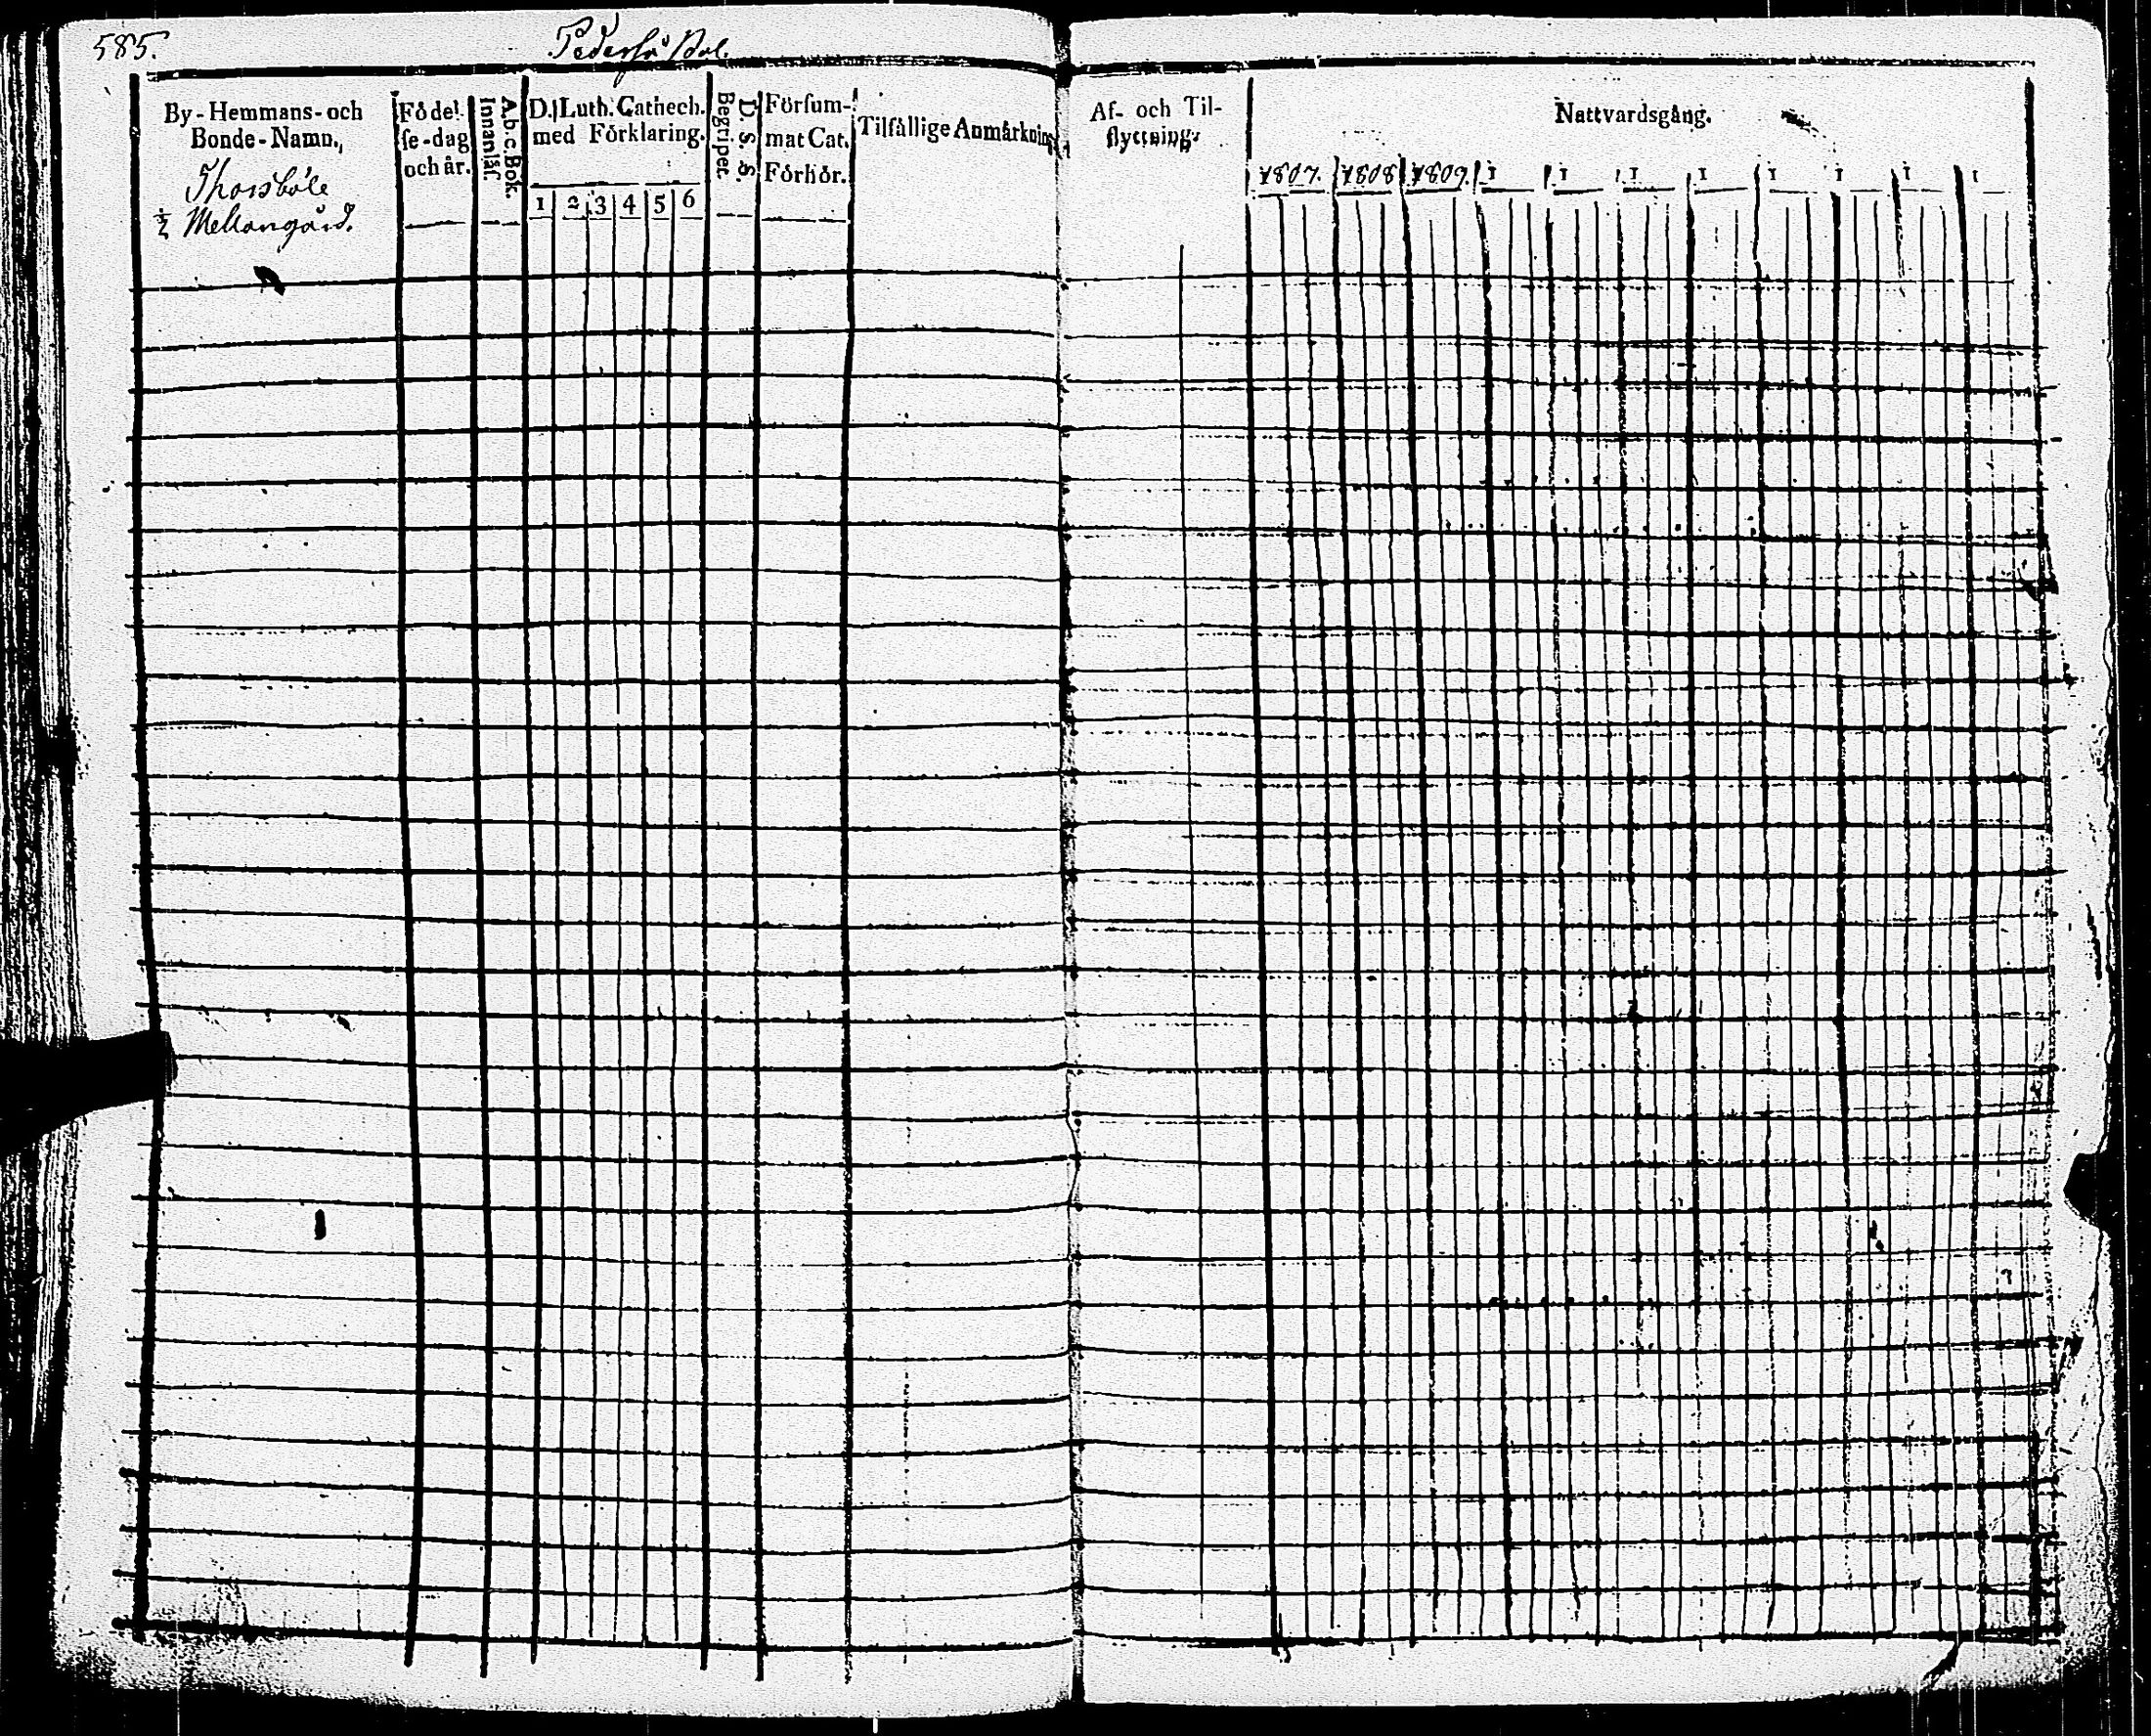 585.
Pedersö Sol.
By-Hemmans-och
Bonde-Namn.
Thorsböle
½ Mellangård.
Födel-
se-dag
och år.
A.b.c.Bok.
Innanläs.
D. Luth. Cathech.
med Förklaring.
1 2 3 4 5 6
D. S. S.
Begripet.
Försum-
mat Cat.
Förhör.
Tilfällige Anmärkning
Af- och Til-
flyttning.
Nattvardsgång.
1807. 1808 1809. 1 1 1 1 1 1 1 1